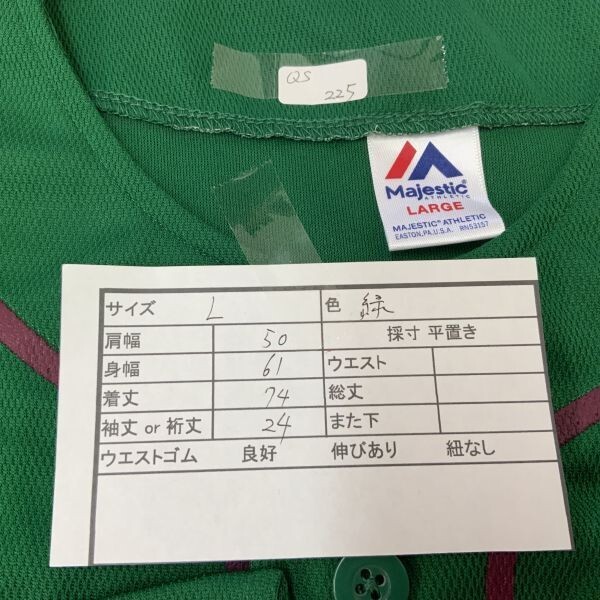 QS
225
Majestic®
ATHLETIC
LARGE
MAJESTIC® ATHLETIC
EASTON,PA.U.S.A. RN53157
サイズ L 色 緑
肩幅 50 採寸 平置き
身幅 61 ウエスト
着丈 74 総丈
袖丈 or 裄丈 24 また下
ウエストゴム 良好 伸びあり 紐なし